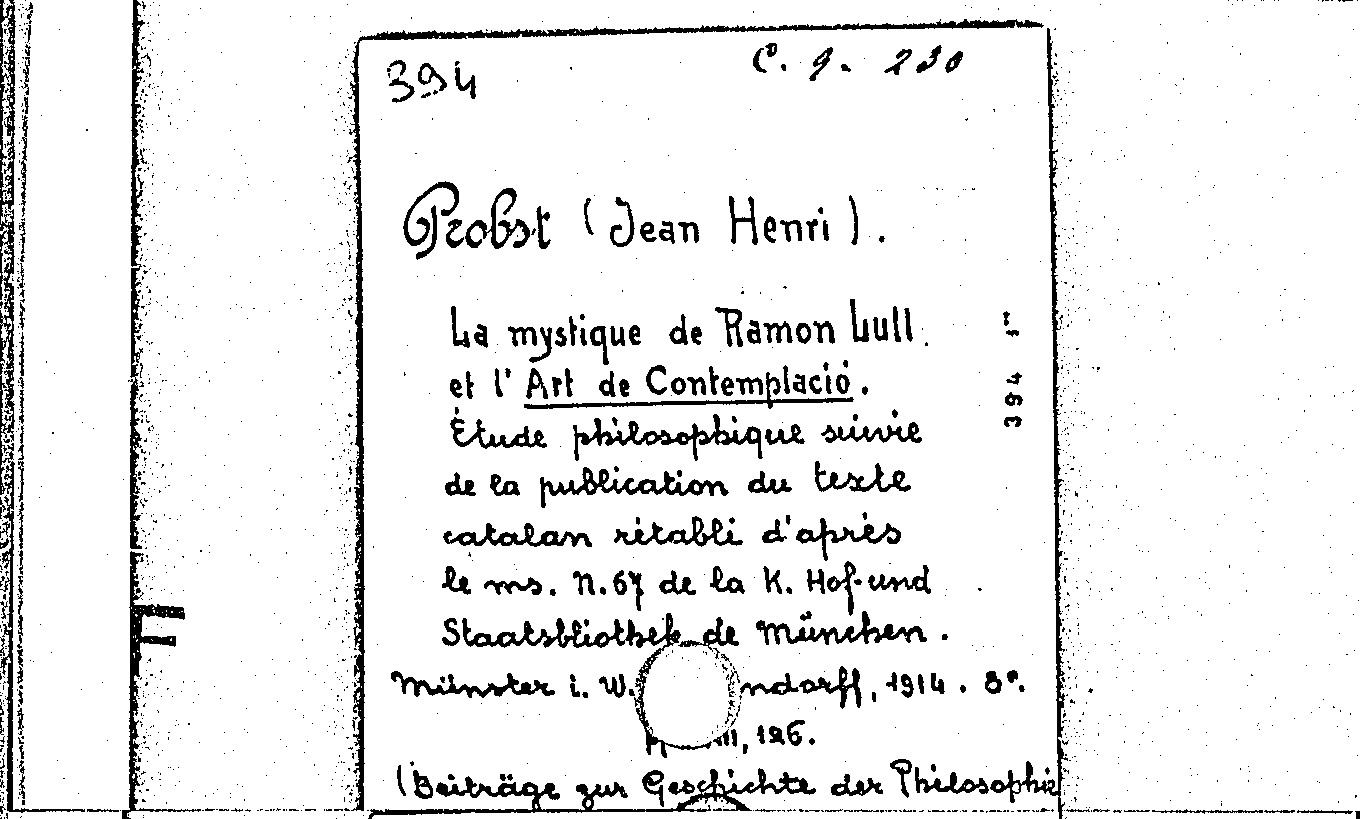 394 C. g. 230
Probst (Jean Henri).
La mystique de Ramon Lull.
et l'Art de Contemplació.
Étude philosophique suivie
de la publication du texte
catalan rétabli d'après
le ms. N. 67 de la K. Hof-und
Staatsbliothek de München.
Münster i. W. ndorff, 1914. 8º.
, 126.
(Beiträge zur Geschichte der Philosophie
394